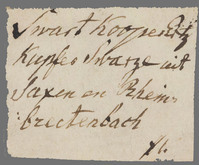 Swart Kooper Ertz
Kupfer Swarze uit
Saxen en Rhein
breetenbach